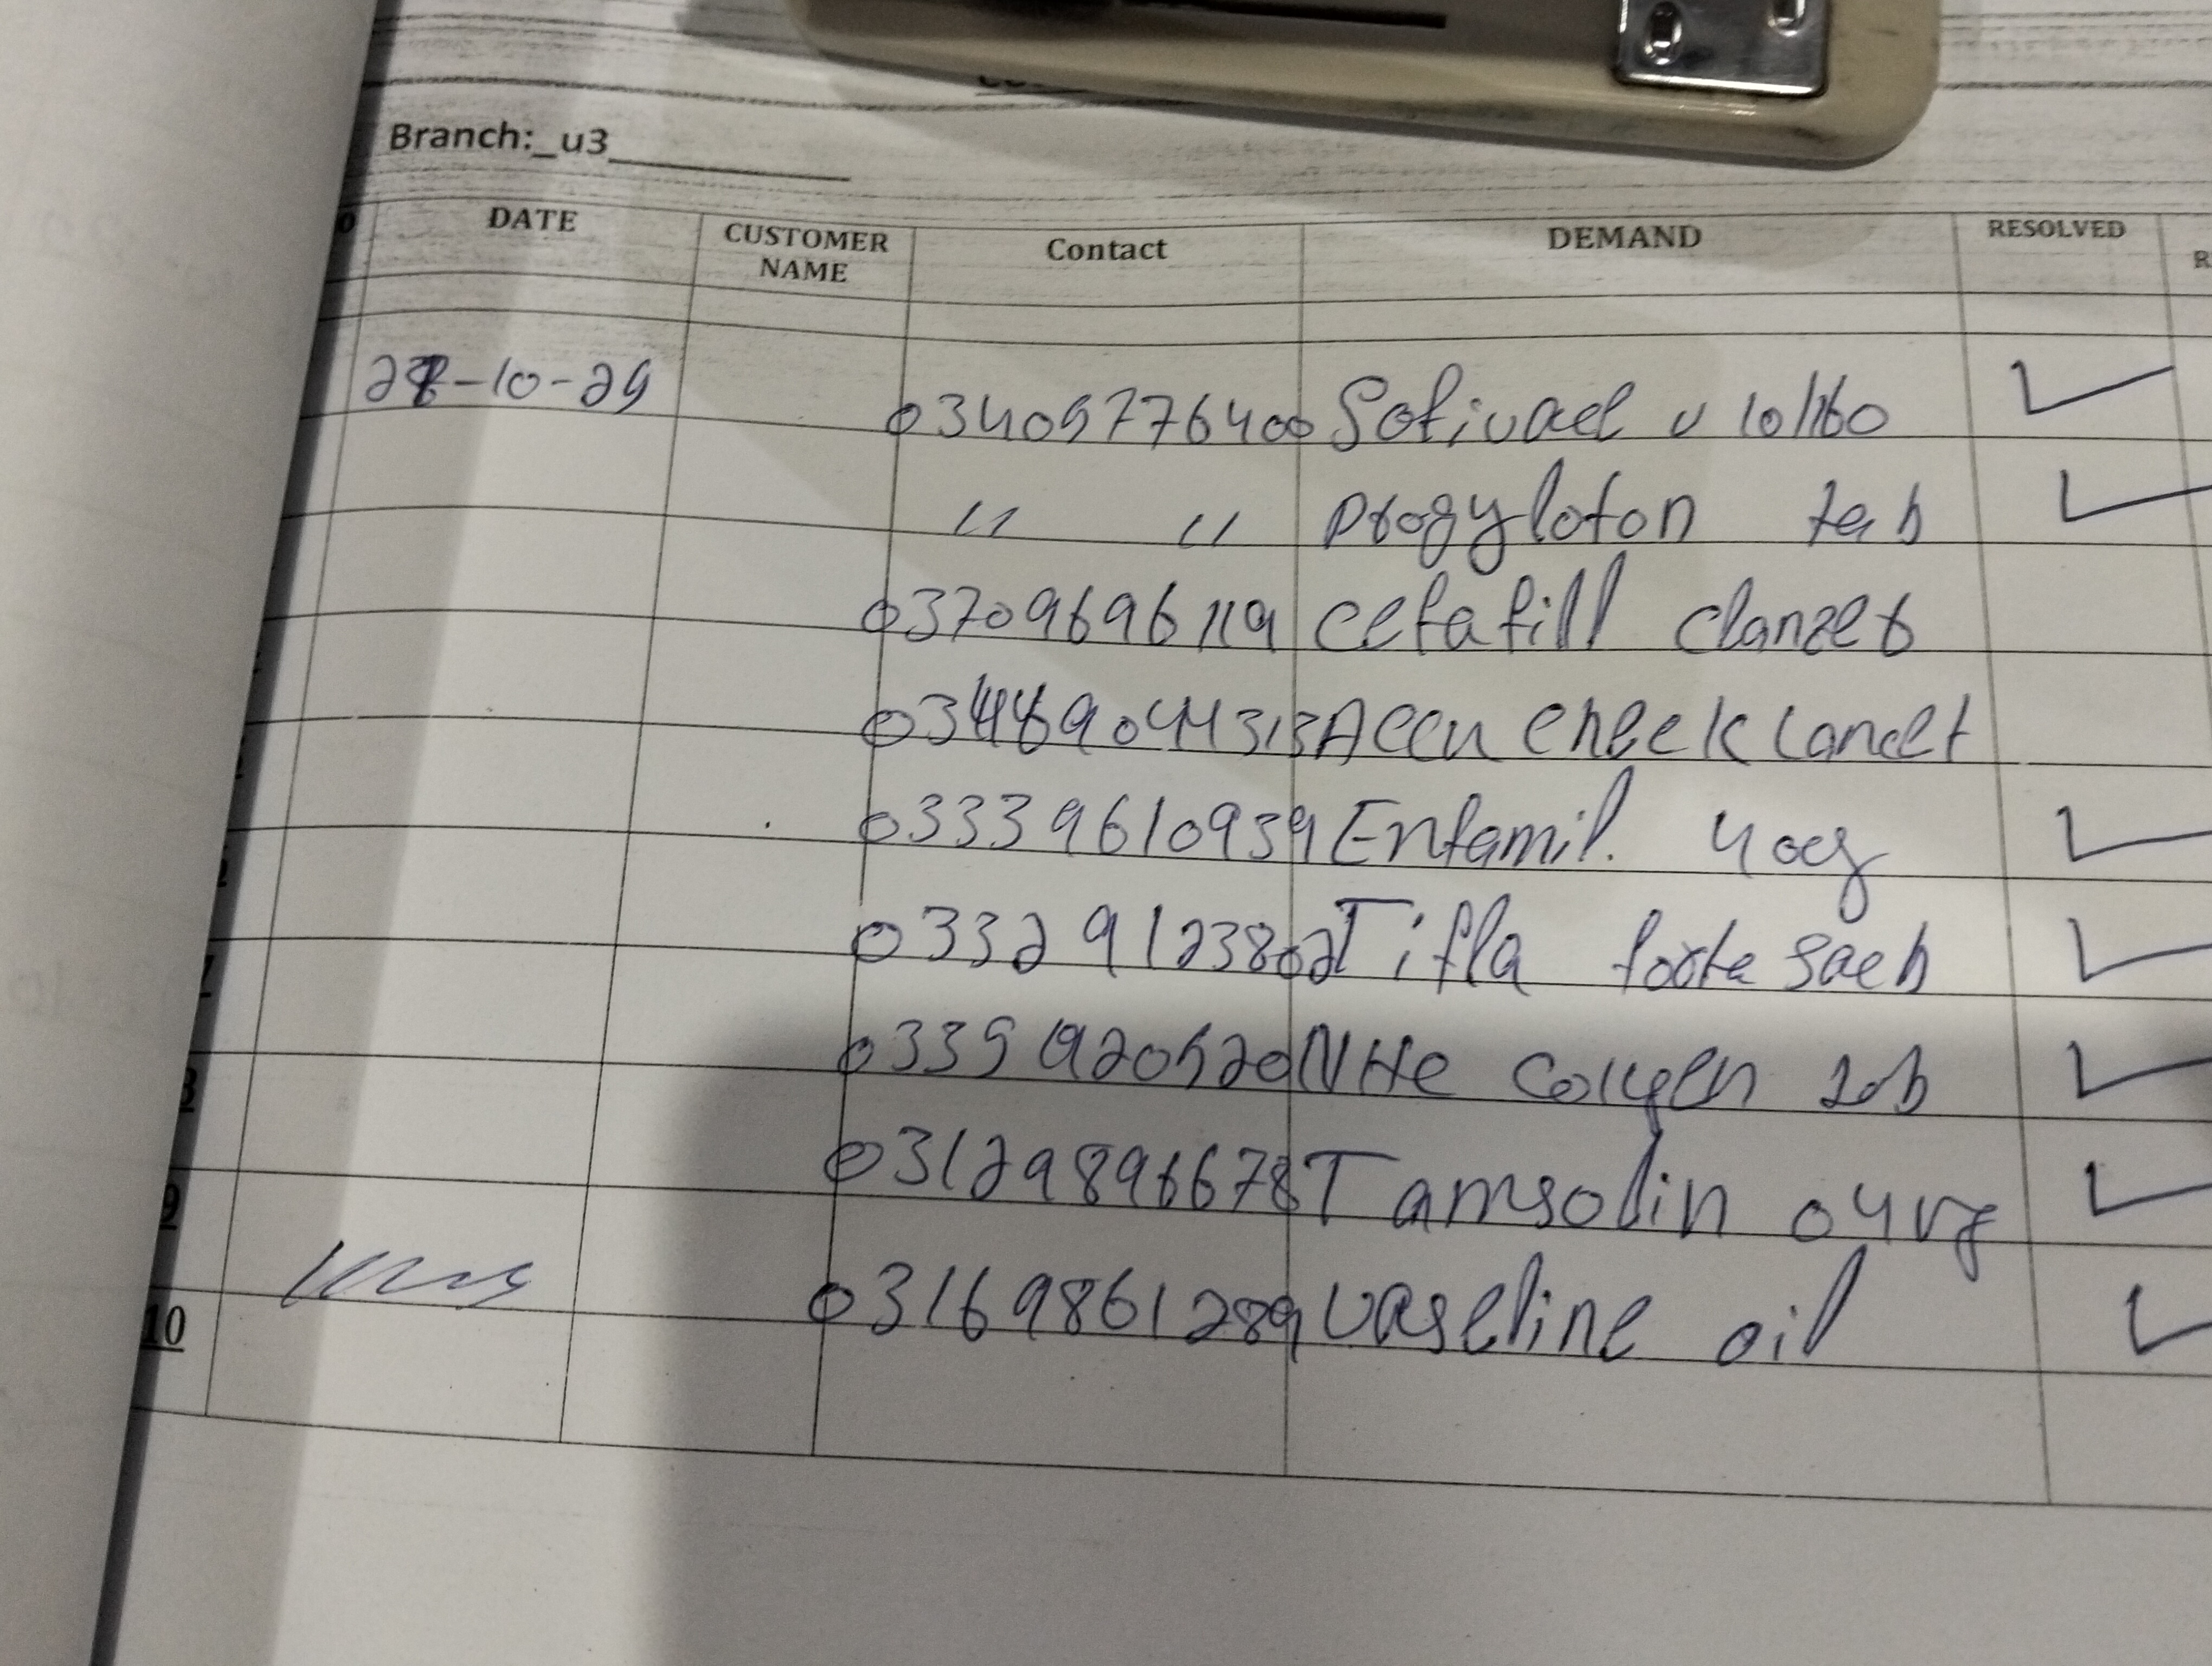 Branch:_u3
DATE CUSTOMER NAME Contact DEMAND RESOLVED
-10-29 03409776400 Sofivael v 10/160
" " progyloton tab
03709696119 cetafill clanzer
Accu check lancet
03339610939 Enfamil. 400g
03329123802 Tifla forte sach
03359920520 NHe
03129896678 Tamsolin 04
03169861289 vaseline oil
9
10